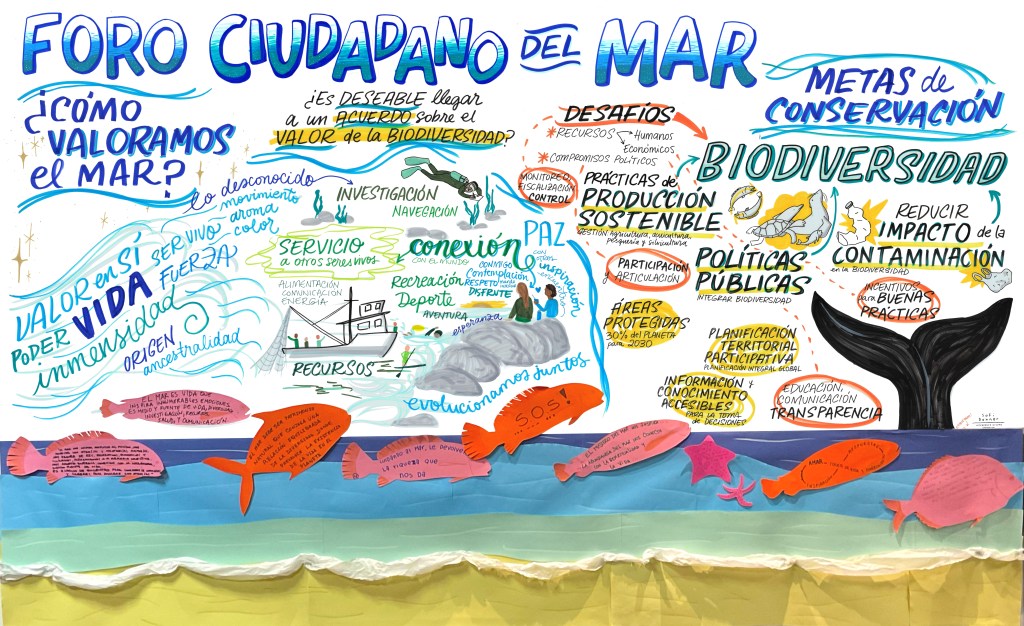 FORO CIUDADANO DEL MAR
¿CÓMO
VALORAMOS
el MAR?
lo desconocido
movimiento
aroma
color
SER VIVO
FUERZA
VALOR en SÍ
PODER VIDA
inmensidad
ORIGEN
ancestralidad
¿ES DESEABLE llegar
a un ACUERDO sobre el
VALOR de la BIODIVERSIDAD?
INVESTIGACIÓN
NAVEGACIÓN
SERVICIO
a otros seres vivos
ALIMENTACIÓN
COMUNICACIÓN
ENERGÍA
conexión
CON EL MUNDO
CONMIGO
PAZ
Contemplación
RESPETO
DISFRUTE
inspiración
Recreación
Deporte
AVENTURA
esperanza
RECURSOS
evolucionamos juntos
DESAFÍOS
*RECURSOS
Humanos
Económicos
*COMPROMISOS POLÍTICOS
MONITOREO,
FISCALIZACIÓN
CONTROL
PRÁCTICAS de
PRODUCCIÓN
SOSTENIBLE
GESTIÓN Agricultura, acuicultura,
pesquería y silvicultura
PARTICIPACIÓN
y ARTICULACIÓN
POLÍTICAS
PÚBLICAS
INTEGRAR BIODIVERSIDAD
ÁREAS
PROTEGIDAS
30% del PLANETA
para 2030
PLANIFICACIÓN
TERRITORIAL
PARTICIPATIVA
PLANIFICACIÓN INTEGRAL GLOBAL
INFORMACIÓN Y
CONOCIMIENTO
ACCESIBLES
PARA LA TOMA
DE DECISIONES
METAS de
CONSERVACIÓN
BIODIVERSIDAD
REDUCIR
IMPACTO de la
CONTAMINACIÓN
en la BIODIVERSIDAD
INCENTIVOS
para BUENAS
PRÁCTICAS
EDUCACIÓN,
COMUNICACIÓN
TRANSPARENCIA
EL MAR ES VIDA QUE
INSPIRA INNUMERABLES EMOCIONES
ES MEDIO Y FUENTE DE VIDA, DIVERSIDAD
SALUD Y COMUNICACIÓN
CUIDANDO EL MAR, SE DEVUELVE
LA RIQUEZA QUE
NOS DA
S.O.S!